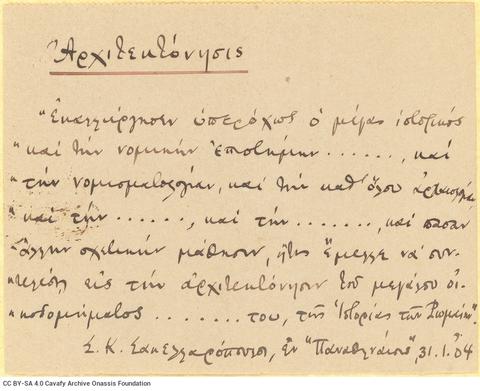 Ἀρχιτεκτόνησις
"Ἐκαλλιέργησεν ὑπερόχως ὁ μέγας ἱστορικὸς
"καὶ τὴν νομικὴν ἐπιστήμην ......., καὶ
"τὴν νομισματολογίαν, καὶ τὴν καθ' ὅλου ἀρχαιολογίαν
"καὶ τὴν ......, καὶ τὴν ......., καὶ πᾶσαν
"ἄλλην σχετικὴν μάθησιν, ἥτις ἔμελλε νὰ συν-
"τελέσῃ εἰς τὴν ἀρχιτεκτόνησιν τοῦ μεγάλου οἰ-
"κοδομήματος ........ του, τῆς Ἱστορίας τῶν Ῥωμαίων".
Σ. Κ. Σακελλαρόπουλος, ἐν "Παναθηναίοις", 31.1.04
CC BY-SA 4.0 Cavafy Archive Onassis Foundation